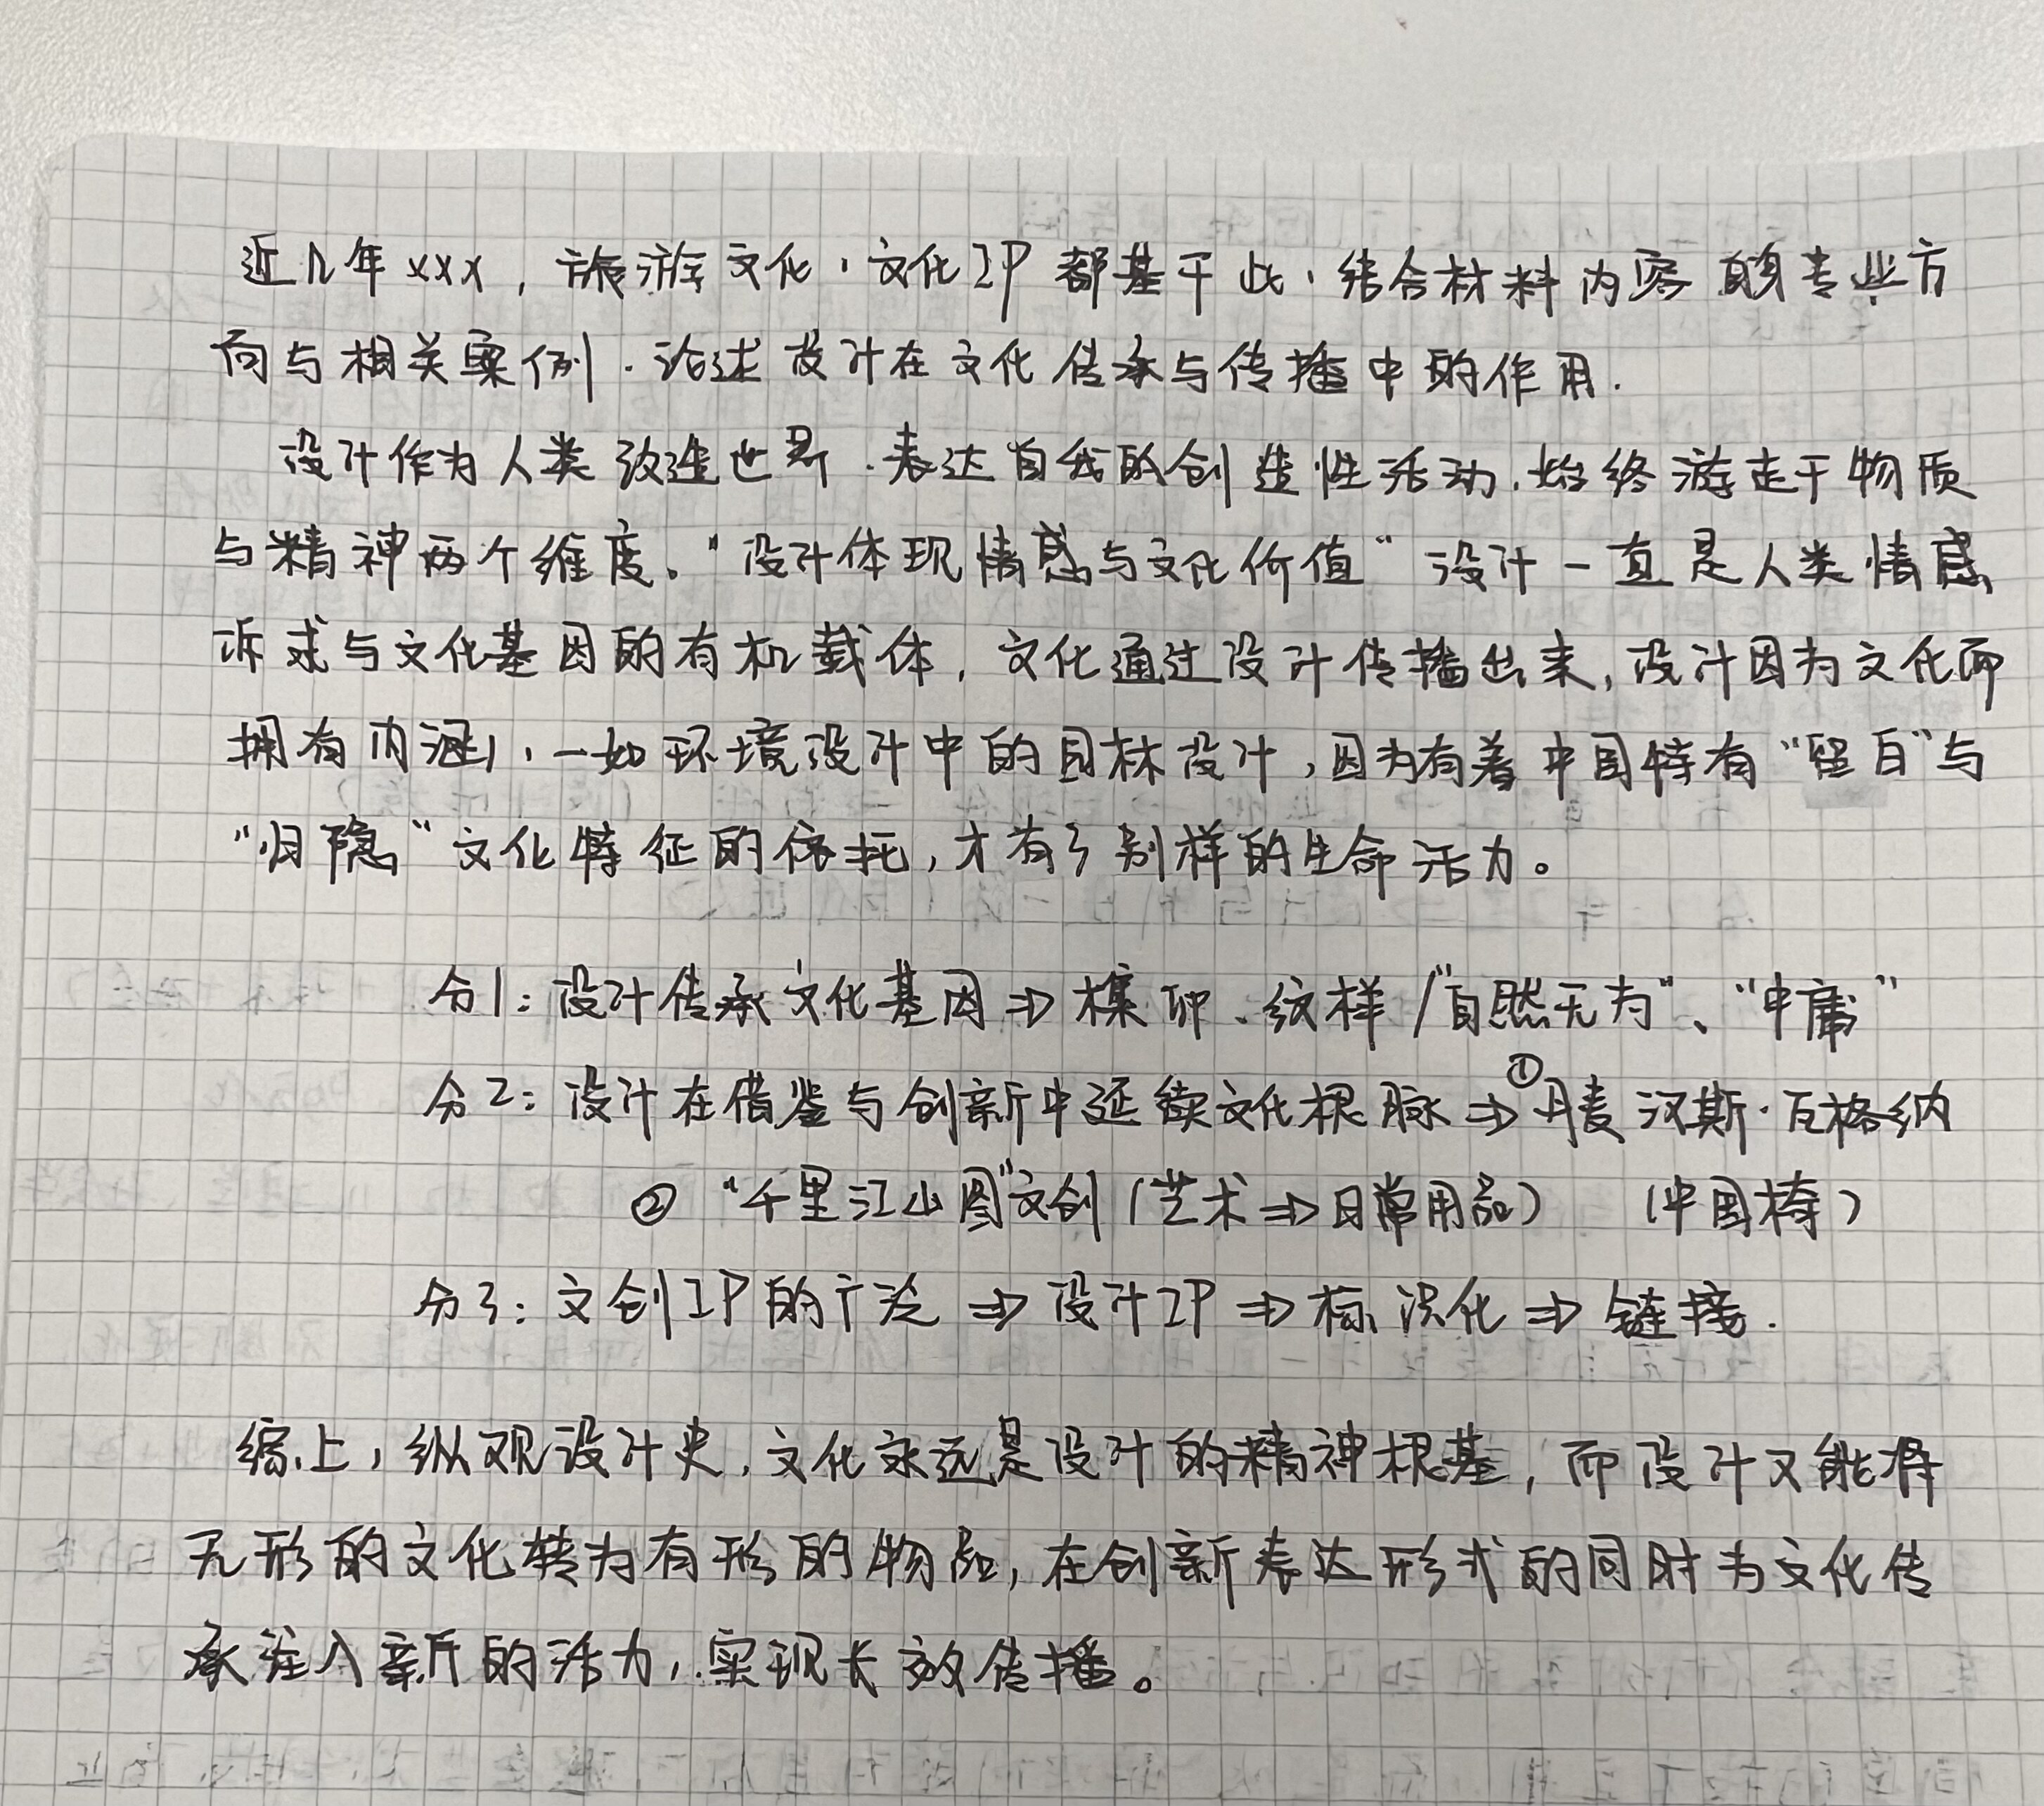 近几年xxx，旅游文化，文化IP都基于此，结合材料内容 自身专业方
向与相关案例．论述设计在文化传承与传播中的作用．
设计作为人类改造世界．表达自我的创造性活动，始终游走于物质
与精神两个维度。“设计体现情感与文化价值”设计一直是人类情感
诉求与文化基因的有机载体，文化通过设计传播出来，设计因为文化而
拥有内涵，一如环境设计中的园林设计，因为有着中国特有“留白”与
“归隐”文化特征的依托，才有了别样的生命活力。
分1：设计传承文化基因⇒榫卯、纹样/“自然无为”、“中庸”
分2：设计在借鉴与创新中延续文化根脉⇒①丹麦 汉斯·瓦格纳
② “千里江山图”文创（艺术⇒日常用品） （中国椅）
分3：文创IP的广泛⇒设计IP⇒标识化⇒链接．
综上，纵观设计史，文化永远是设计的精神根基，而设计又能将
无形的文化转为有形的物品，在创新表达形式的同时为文化传
承注入新的活力，实现长效传播。